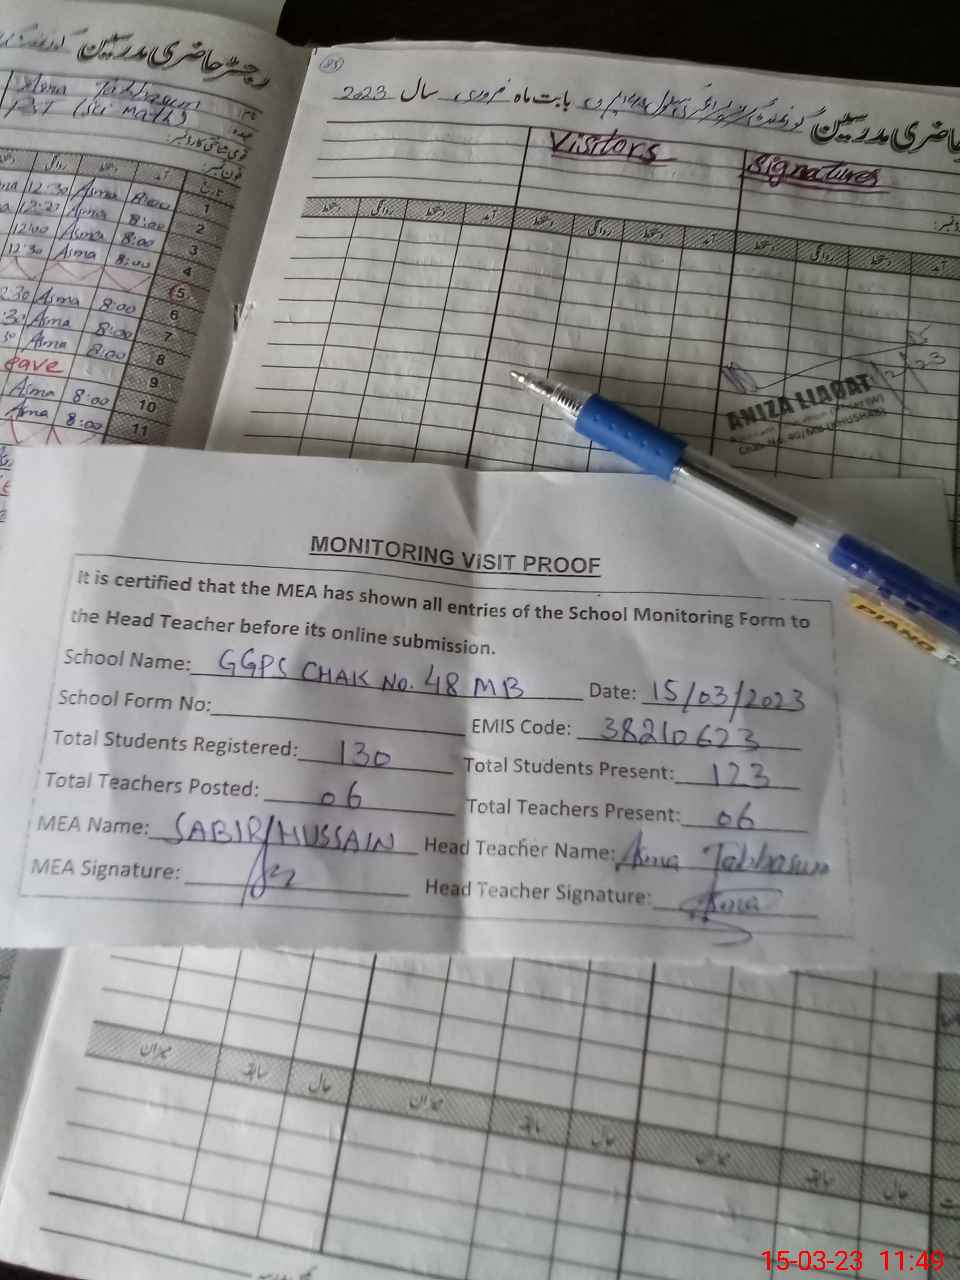 رجسٹر حاضری مدرسین
Asma Tabbasum
PST (Sci math)
نام:
عہدہ:
قومی شناختی کارڈ نمبر:
فون نمبر:
تاریخ
آمد
دستخط
روانگی
1 8:00 Asma 12:30
2 8:00 Asma 12:27
3 8:00 Asma 12:00
4 8:00 Asma 12:30
5
6 8:00 Asma
7 8:00 Asma
8 8:00 Asma
9 eave
10 8:00 Asma
11 8:00 Asma
حاضری مدرسین
بابت ماہ فروری سال 2023
Visitors
Signatures
آمد دستخط روانگی دستخط آمد دستخط روانگی دستخط آمد دستخط روانگی دستخط
ANIZA LIAQAT
PIANO
MONITORING VISIT PROOF
It is certified that the MEA has shown all entries of the School Monitoring Form to
the Head Teacher before its online submission.
School Name: GGPS CHAK No. 48 MB Date: 15/03/2023
School Form No: EMIS Code: 38210623
Total Students Registered: 130 Total Students Present: 123
Total Teachers Posted: 06 Total Teachers Present: 06
MEA Name: SABIR HUSSAIN Head Teacher Name: Asma Tabbasum
MEA Signature: Head Teacher Signature: Asma
میزان سابقہ حال میزان سابقہ حال میزان سابقہ حال
15-03-23 11:49